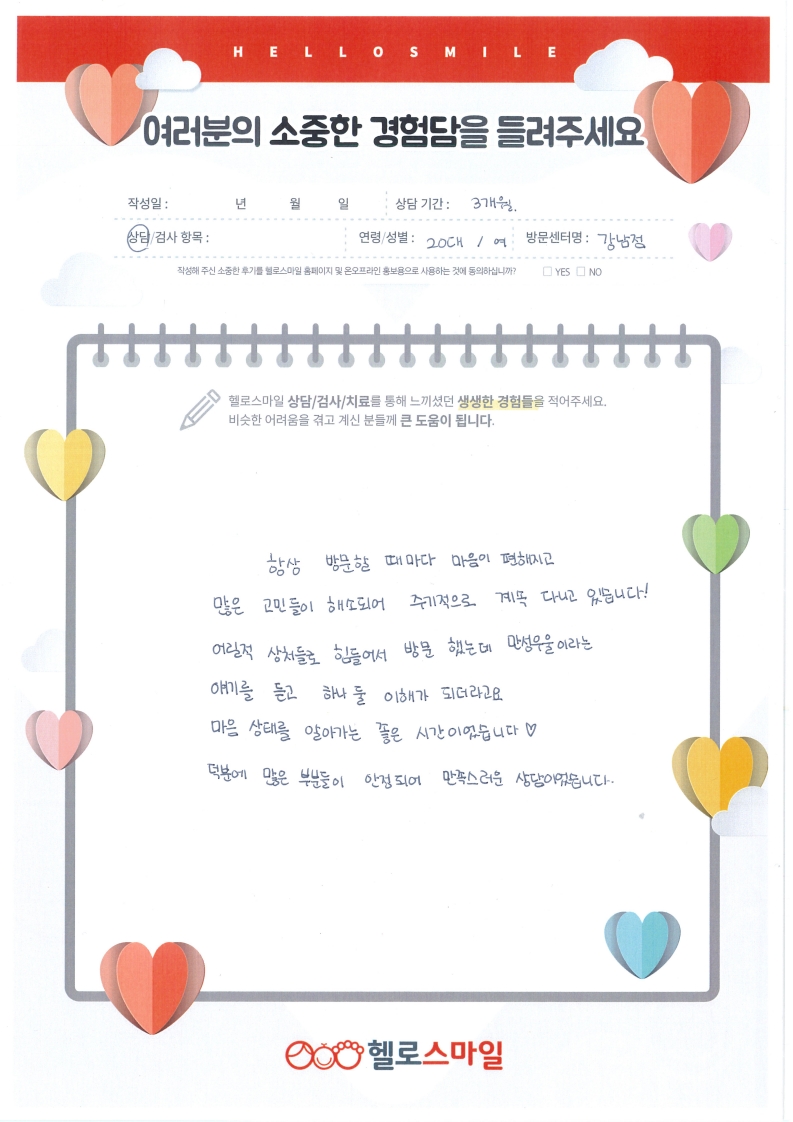 HELLOSMILE
여러분의 소중한 경험담을 들려주세요
작성일 : 년 월 일 상담 기간 : 3개월.
상담/검사 항목 : 연령/성별 : 20대 / 여 방문센터명 : 강남점
작성해 주신 소중한 후기를 헬로스마일 홈페이지 및 온오프라인 홍보용으로 사용하는 것에 동의하십니까? □ YES □ NO
헬로스마일 상담/검사/치료를 통해 느끼셨던 생생한 경험들을 적어주세요.
비슷한 어려움을 겪고 계신 분들께 큰 도움이 됩니다.
항상 방문할 때마다 마음이 편해지고
많은 고민들이 해소되어 주기적으로 계속 다니고 있습니다!
어릴적 상처들로 힘들어서 방문 했는데 만성우울이라는
얘기를 듣고 하나 둘 이해가 되더라고요
마음 상태를 알아가는 좋은 시간이었습니다 ♡
덕분에 많은 부분들이 안정되어 만족스러운 상담이었습니다.
헬로스마일